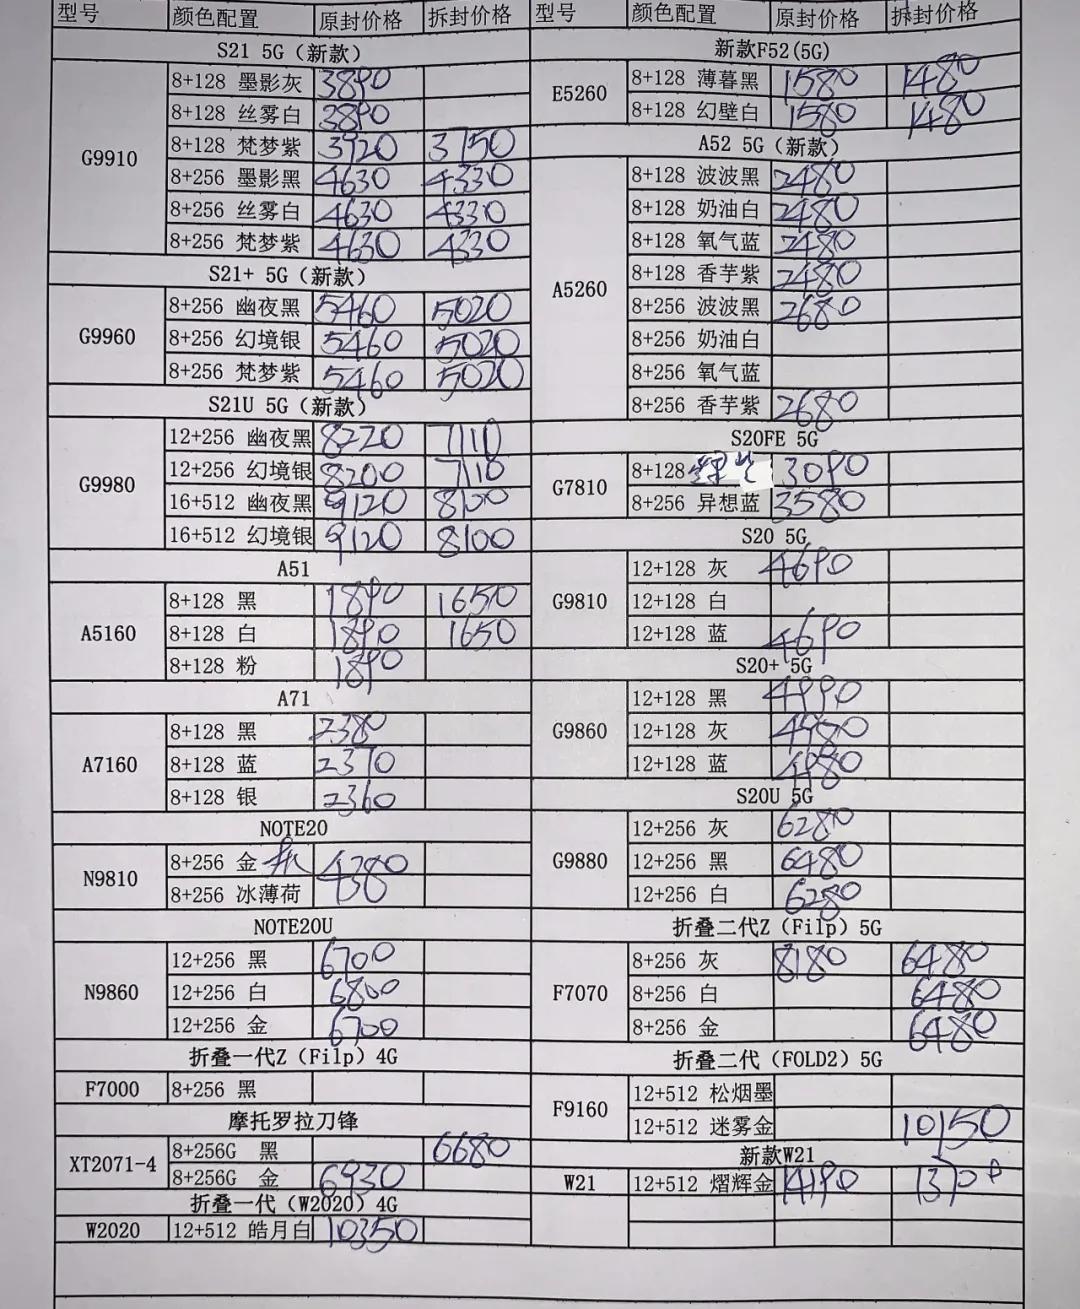 型号 颜色配置 原封价格 拆封价格 型号 颜色配置 原封价格 拆封价格
S21 5G（新款）
G9910
8+128 墨影灰 3890
8+128 丝雾白 3890
8+128 梵梦紫 3920 3750
8+256 墨影黑 4630 4330
8+256 丝雾白 4630 4330
8+256 梵梦紫 4630 4330
S21+ 5G（新款）
G9960
8+256 幽夜黑 5460 5020
8+256 幻境银 5460 5020
8+256 梵梦紫 5460 5020
S21U 5G（新款）
G9980
12+256 幽夜黑 8220 7110
12+256 幻境银 8200 7110
16+512 幽夜黑 9120 8100
16+512 幻境银 9120 8100
A51
A5160
8+128 黑 1890 1650
8+128 白 1890 1650
8+128 粉 1890
A71
A7160
8+128 黑 2380
8+128 蓝 2370
8+128 银 2360
NOTE20
N9810
8+256 金 4380
8+256 冰薄荷 4380
NOTE20U
N9860
12+256 黑 6700
12+256 白 6800
12+256 金 6700
折叠一代Z（Filp）4G
F7000 8+256 黑
摩托罗拉刀锋
XT2071-4
8+256G 黑 6680
8+256G 金 6930
折叠一代（W2020）4G
W2020 12+512 皓月白 10350
新款F52(5G)
E5260
8+128 薄暮黑 1580 1480
8+128 幻壁白 1580 1480
A52 5G（新款）
A5260
8+128 波波黑 2480
8+128 奶油白 2480
8+128 氧气蓝 2480
8+128 香芋紫 2480
8+256 波波黑 2680
8+256 奶油白
8+256 氧气蓝
8+256 香芋紫 2680
S20FE 5G
G7810
8+128 3090
8+256 异想蓝 3580
S20 5G
G9810
12+128 灰 4690
12+128 白
12+128 蓝 4690
S20+ 5G
G9860
12+128 黑 4990
12+128 灰
12+128 蓝 4980
S20U 5G
G9880
12+256 灰 6280
12+256 黑 6480
12+256 白 6280
折叠二代Z（Filp）5G
F7070
8+256 灰 8180 6480
8+256 白 6480
8+256 金 6480
折叠二代（FOLD2）5G
F9160
12+512 松烟墨
12+512 迷雾金 10150
新款W21
W21 12+512 熠辉金 14190